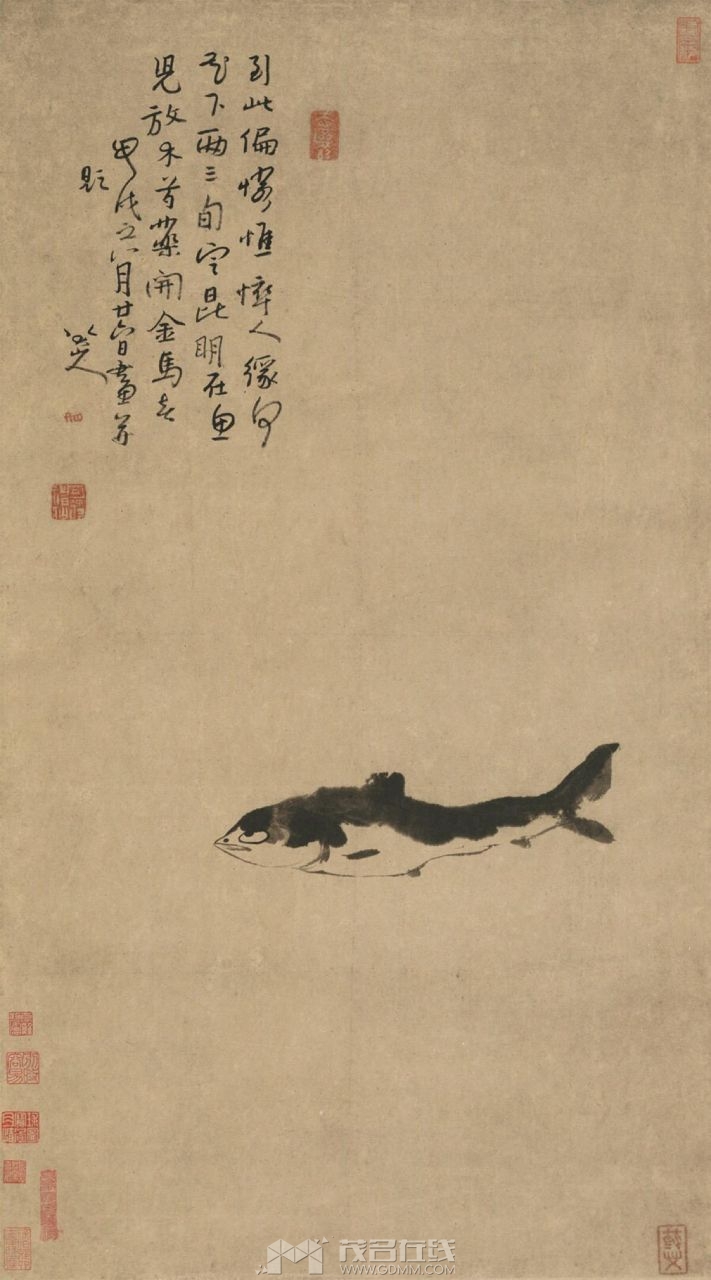 到此偏憐憔悴人緣何
花下兩三旬定昆明在魚
兒放木芍藥開金馬春
甲戌之八月廿六日畫并
題
八大山人
茂名在线
WWW.GDMM.COM